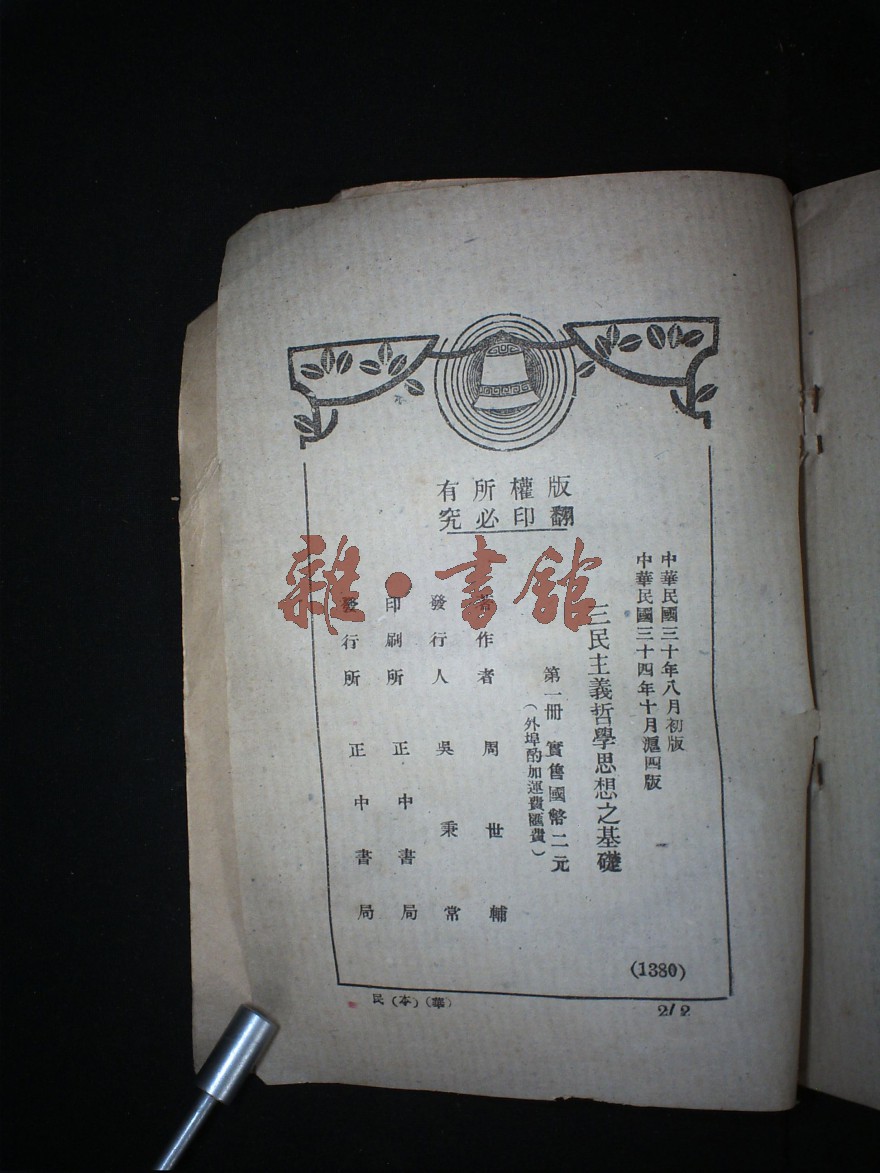 版權所有
翻印必究
中華民國三十年八月初版
中華民國三十四年十月滬四版
三民主義哲學思想之基礎
第一冊 實售國幣二元
（外埠酌加運費匯費）
著作者 周世輔
發行人 吳秉常
印刷所 正中書局
發行所 正中書局
(1380)
民(本)(華)
2/2
雜·書館